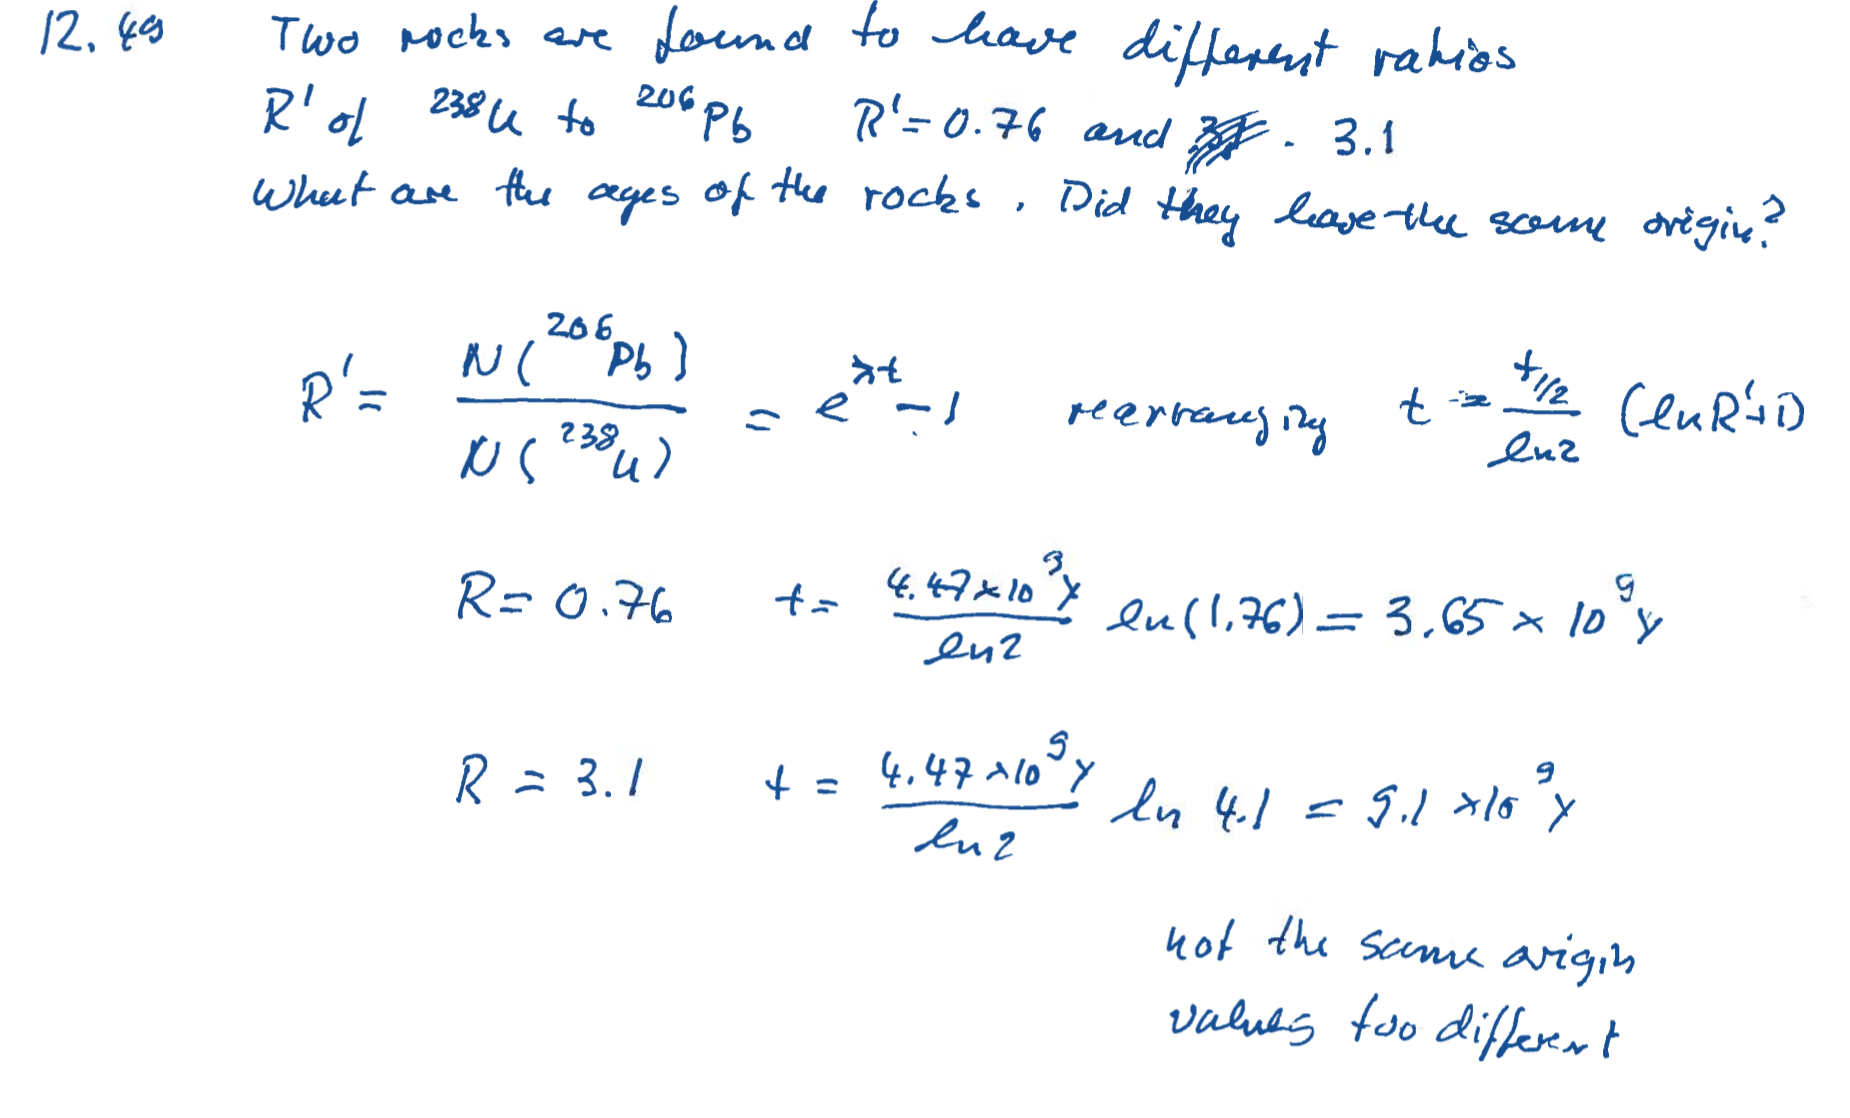 12.49 Two rocks are found to have different ratios
R' of ²³⁸U to ²⁰⁶Pb R' = 0.76 and . 3.1
What are the ages of the rocks. Did they have the same origin?
R' = N(²⁰⁶Pb) / N(²³⁸U) = e^λt - 1 rearranging t = t₁/₂ / ln2 (ln R'+1)
R = 0.76 t = 4.47×10⁹y / ln2 ln(1.76) = 3.65 × 10⁹ y
R = 3.1 t = 4.47×10⁹y / ln2 ln 4.1 = 9.1 ×10⁹ y
not the same origin
values too different